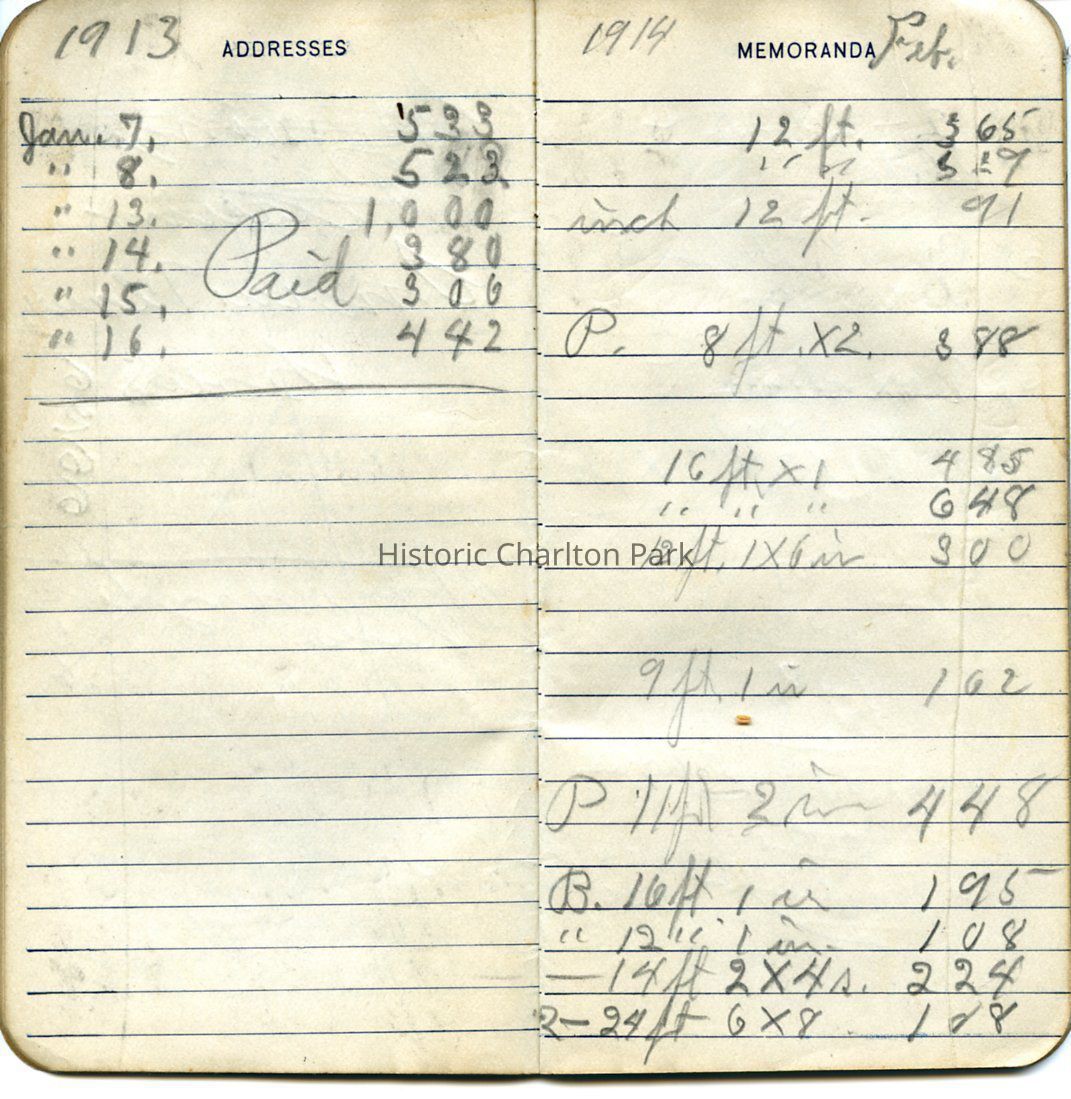 1913 ADDRESSES
Jan. 7. 533
" 8. 523
" 13. 1,000
" 14. 380
Paid
" 15. 306
" 16. 442
1914 MEMORANDA Feb.
12 ft. 365
" "
inch 12 ft. 91
P. 8 ft. X2. 388
16 ft X 1 485
" " " 648
Historic Charlton Park
12 ft. 1X6 in 300
9 ft 1 in 162
P 11 ft 2 in 448
B. 16 ft 1 in 195
" 12 " 1 in. 108
— 14 ft 2X4s. 224
2 — 24 ft 6X8